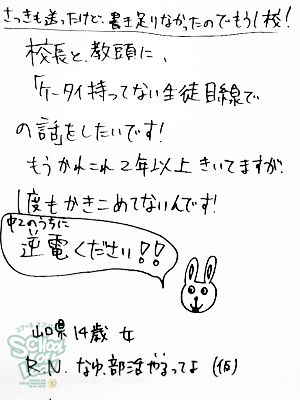 さっきも送ったけど、書き足りなかったのでもう1校!
校長と、教頭に、
「ケータイ持ってない生徒目線で
の話をしたいです!
もうかれこれ2年以上きいてますが、
1度もかきこめてないんです!
中2のうちに
逆電ください!!
山口県 14歳 女
R.N. なゆ、部活やるってよ (仮)